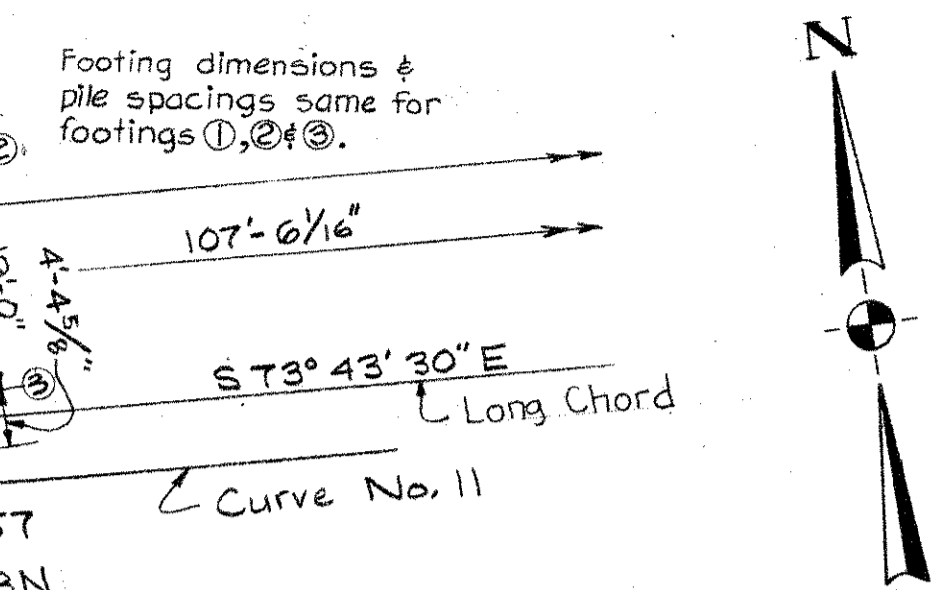 Footing dimensions &
pile spacings same for
footings ①,②&③.
N
②
107'-6 1/16"
4'-4 5/8"
S 73° 43' 30" E
③
Long Chord
Curve No. 11
57
BN